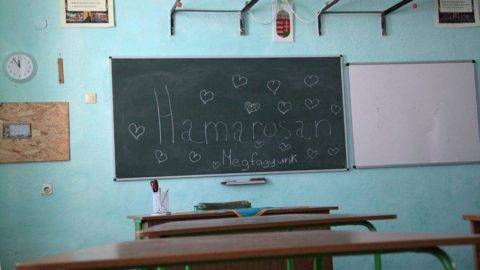 Hamarosan
Megfagyunk